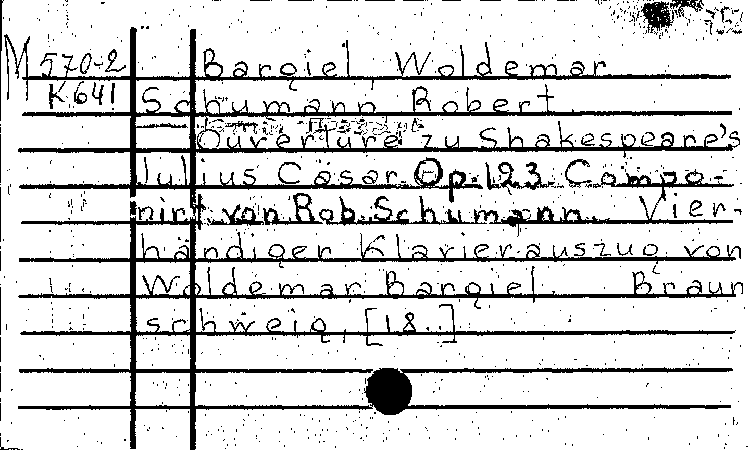 M 570-2 Bargiel, Woldemar
K 641 Schumann Robert
Ouverture zu Shakespeare's
Julius Cäsar. Op. 123. Compo-
nirt von Rob. Schumann. Vier-
händiger Klavierauszug von
Woldemar Bargiel. Braun
schweig, [18..]